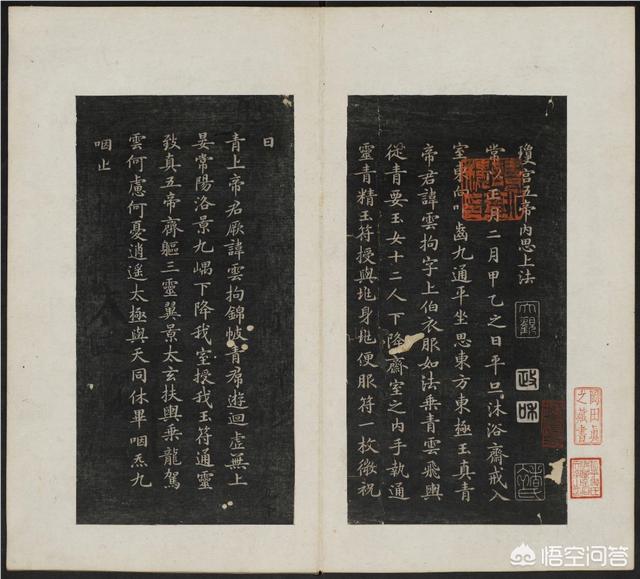 瓊宮五帝內思上法
常以正月二月甲乙之日平旦沐浴齋戒入
室東向叩齒九通平坐思東方東極玉真青
帝君諱雲拘字上伯衣服如法乘青雲飛輿
從青要玉女十二人下降齋室之內手執通
靈青精玉符授與兆身兆便服符一枚微祝
曰
青上帝君厥諱雲拘錦帔青帬遊迴虛無上
晏常陽洛景九嵎下降我室授我玉符通靈
致真五帝齊軀三靈翼景太玄扶輿乘龍駕
雲何慮何憂逍遙太極與天同休畢咽炁九
咽止
大觀
政和
之藏書
悟空问答